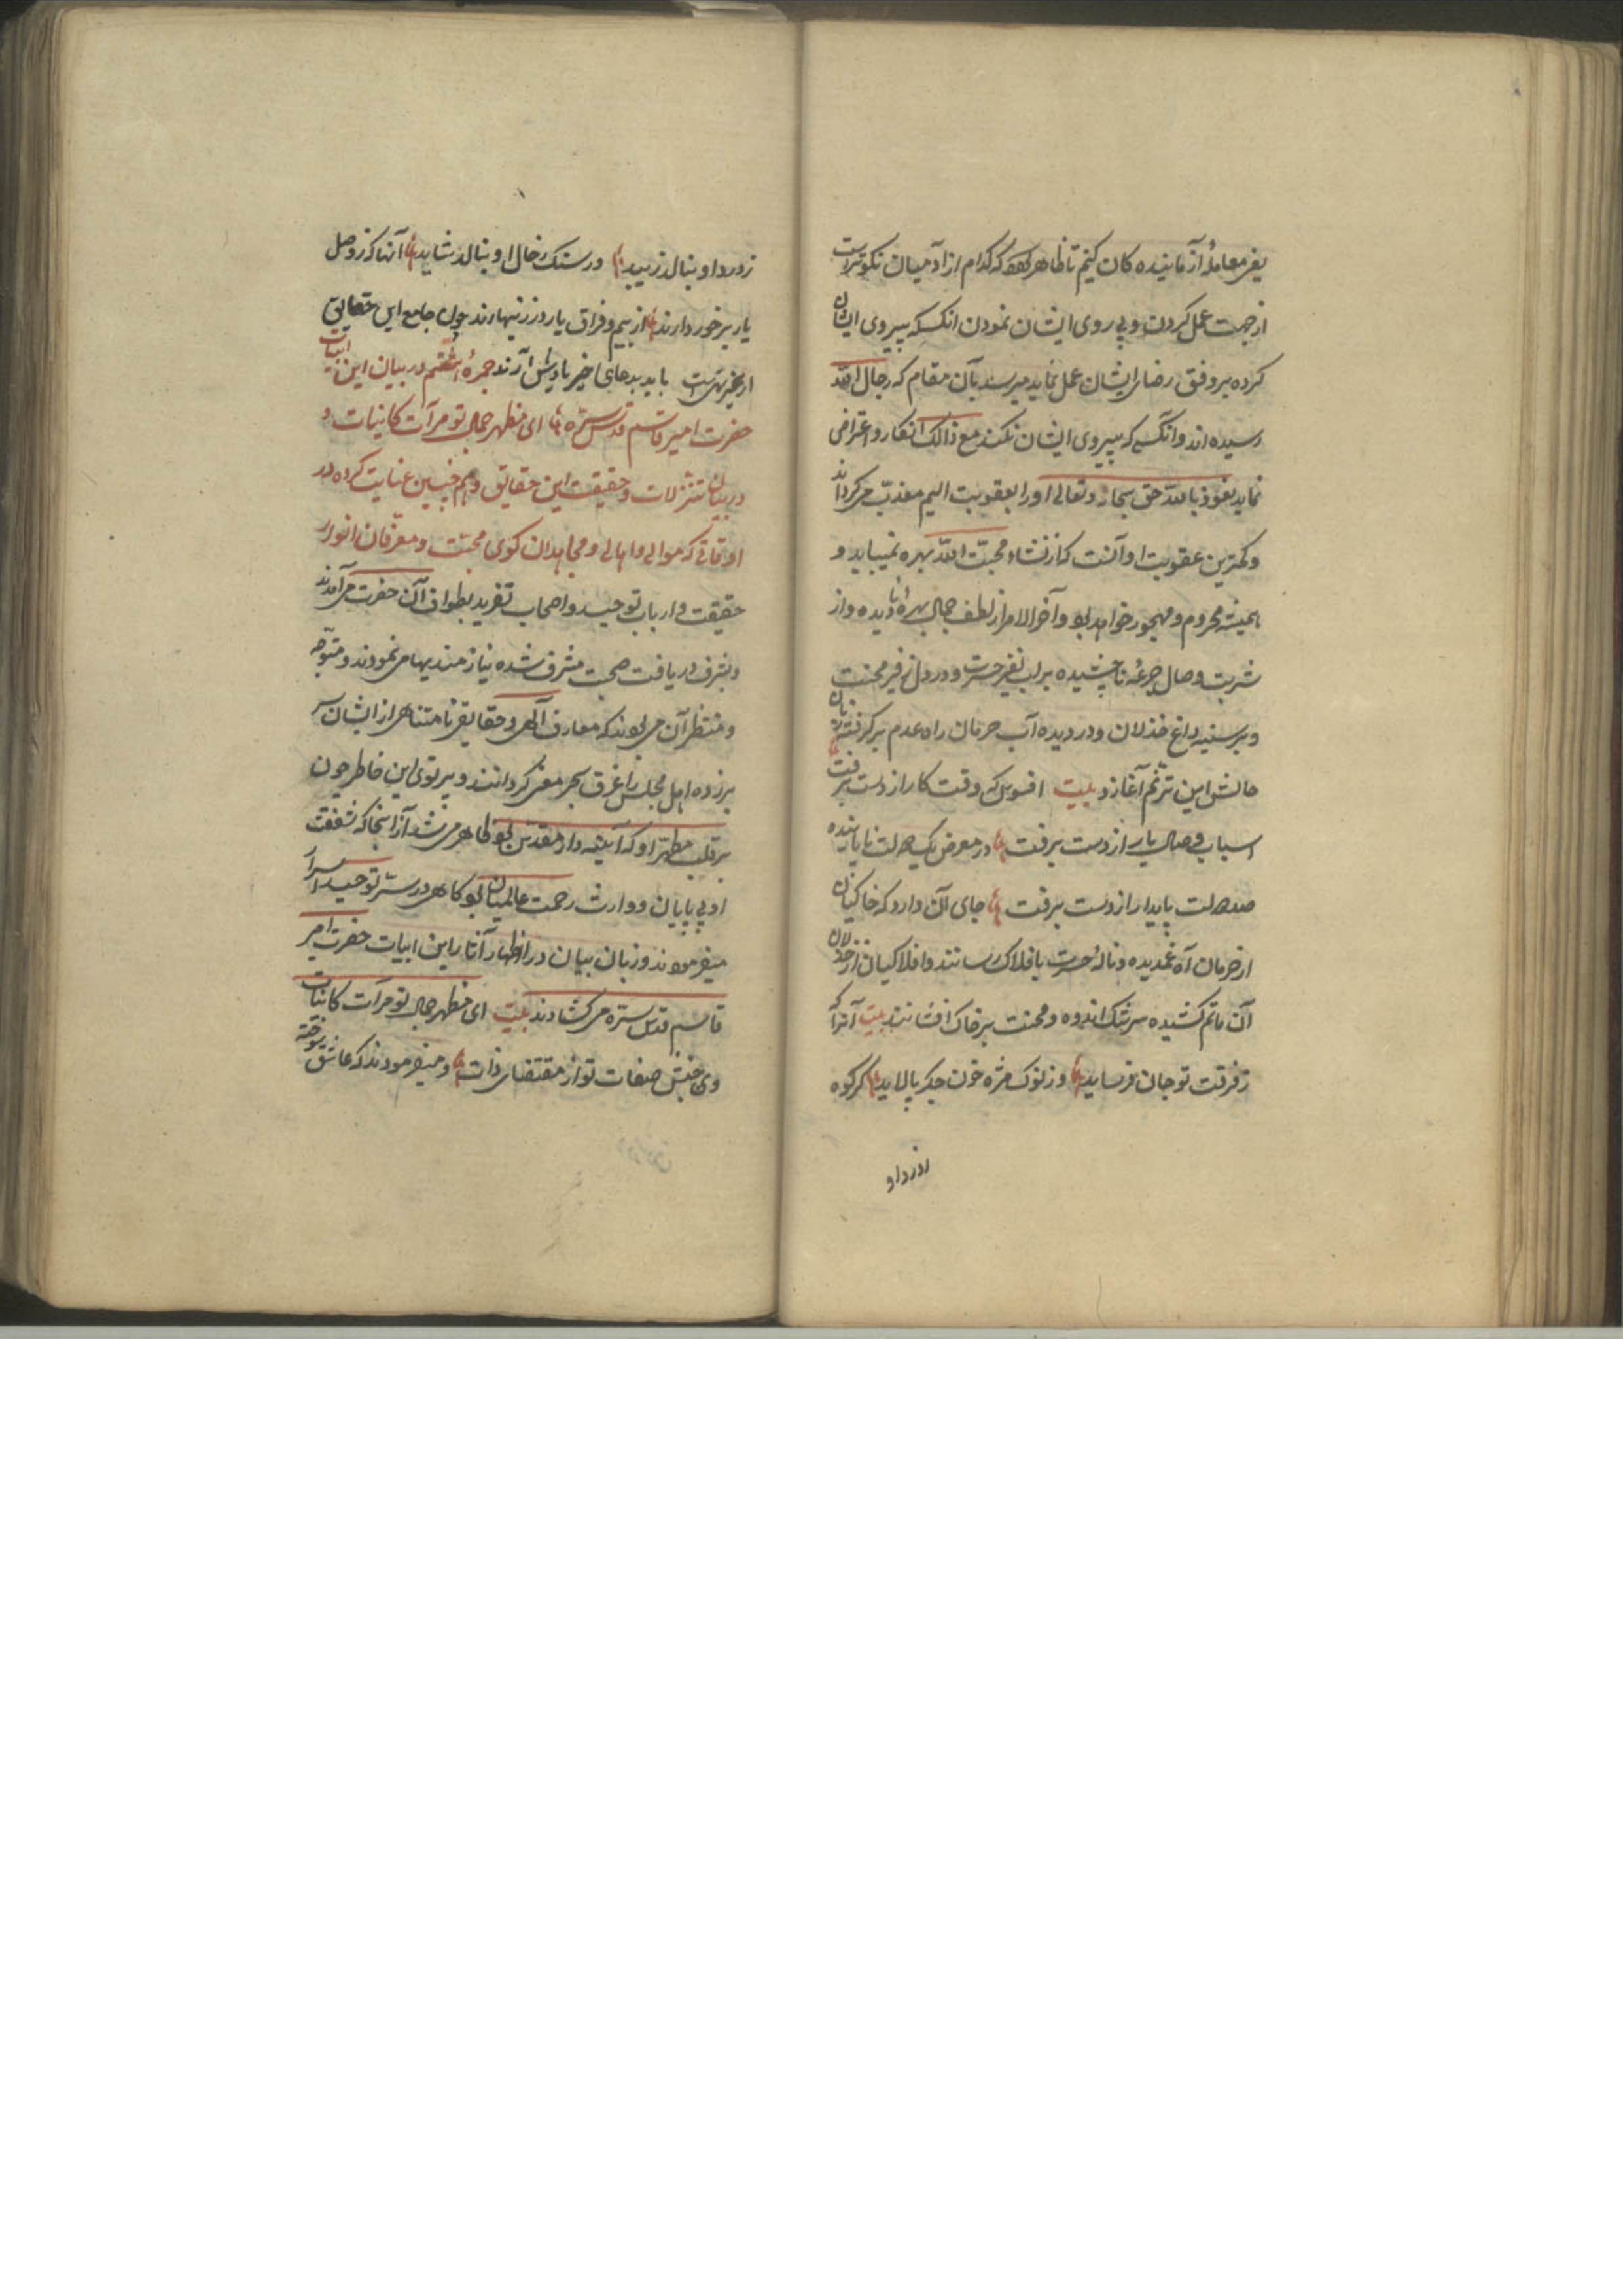 یعنی معامله آزماینده کان کنیم تا ظاهر شود که کدام از آدمیان نکوتر است
از جهت عمل کردن و پی روی ایشان نمودن انکسیکه پیروی ایشان
کرده بر وفق رضای ایشان عمل نماید میرسد بآن مقام که رجال الله
رسیده اند و آنکسی که پیروی ایشان نکند مع ذالک انکار و اعتراض
نماید نعوذ بالله حق سبحانه و تعالی او را بعقوبت الیم معذب می کرداند
و کمترین عقوبت او آنست که از نشاء محبت الله بهره نمییابد و
همیشه محروم و مهجور خواهد بود و آخر الامر از لطف جمال بهره نا دیده و از
شربت وصال جرعه نا چشیده بر لب نفیر حسرت و در دل زفیر محنت
و بر سینه داغ خذلان و در دیده آب حرمان راه عدم بر کرفته زبان
حالش این ترنم آغازد بیت افسوس که وقت کار از دست برفت
اسباب وصال یار از دست برفت در معرض یک دولت نا پاینده
صد دولت پایدار از دست برفت جای آن دارد که خاکیان
از حرمان آه غمدیده و ناله حسرت بافلاک رسانند و افلاکیان از خذلان
آن ماتم کشیده سرشک اندوه و محنت بر خاک افشانند بیت آنرا که
ز فرقت تو جان فرساید وز نوک مژه خون جکر پالاید کر کوه
ز درد او
ز درد او بنالد زیبد ور سنک ز حال او بنالد شاید آنها که ز وصل
یار برخوردارند از بیم فراق یار در زنهارند چون جامع این حقایق
باید بدعای خیر یادش آرند جمره هشتم در بیان این ابیات
حضرت امیر قاسم قدس سره ای مظهر جمال تو مرآت کاینات و
در بیان تنزلات و حقیقت این حقایق و همچنین عنایت کرده در
اوقاتی که موالی و اهالی و مجاهدان کوی محبت و معرفان انوار
حقیقت و ارباب توحید و اصحاب تفرید بطواف آن حضرت می آمدند
و بشرف دریافت صحبت مشرف شده نیازمندیها می نمودند و متوجه
و منتظر آن می بودند که معارف الهی و حقایق نا متناهی از ایشان سر
برزده اهل مجلس را غرق بحر معنی کردانند و پرتوی این خاطر چون
بر قلب مطهر او که آیینه دار مقدس بود ظاهر می شد از آنجا که شفقت
او بی پایان و وارث رحمت عالمیان بود کاهی در ستر توحید اسرار
میفرمودند و زبان بیان در اظهار آثار این ابیات حضرت امیر
قاسم قدس سره می کشادند بیت ای مظهر جمال تو مرآت کاینات
وی جنبش صفات تو از مقتضای ذات و میفرمودند که عاشق سوخته